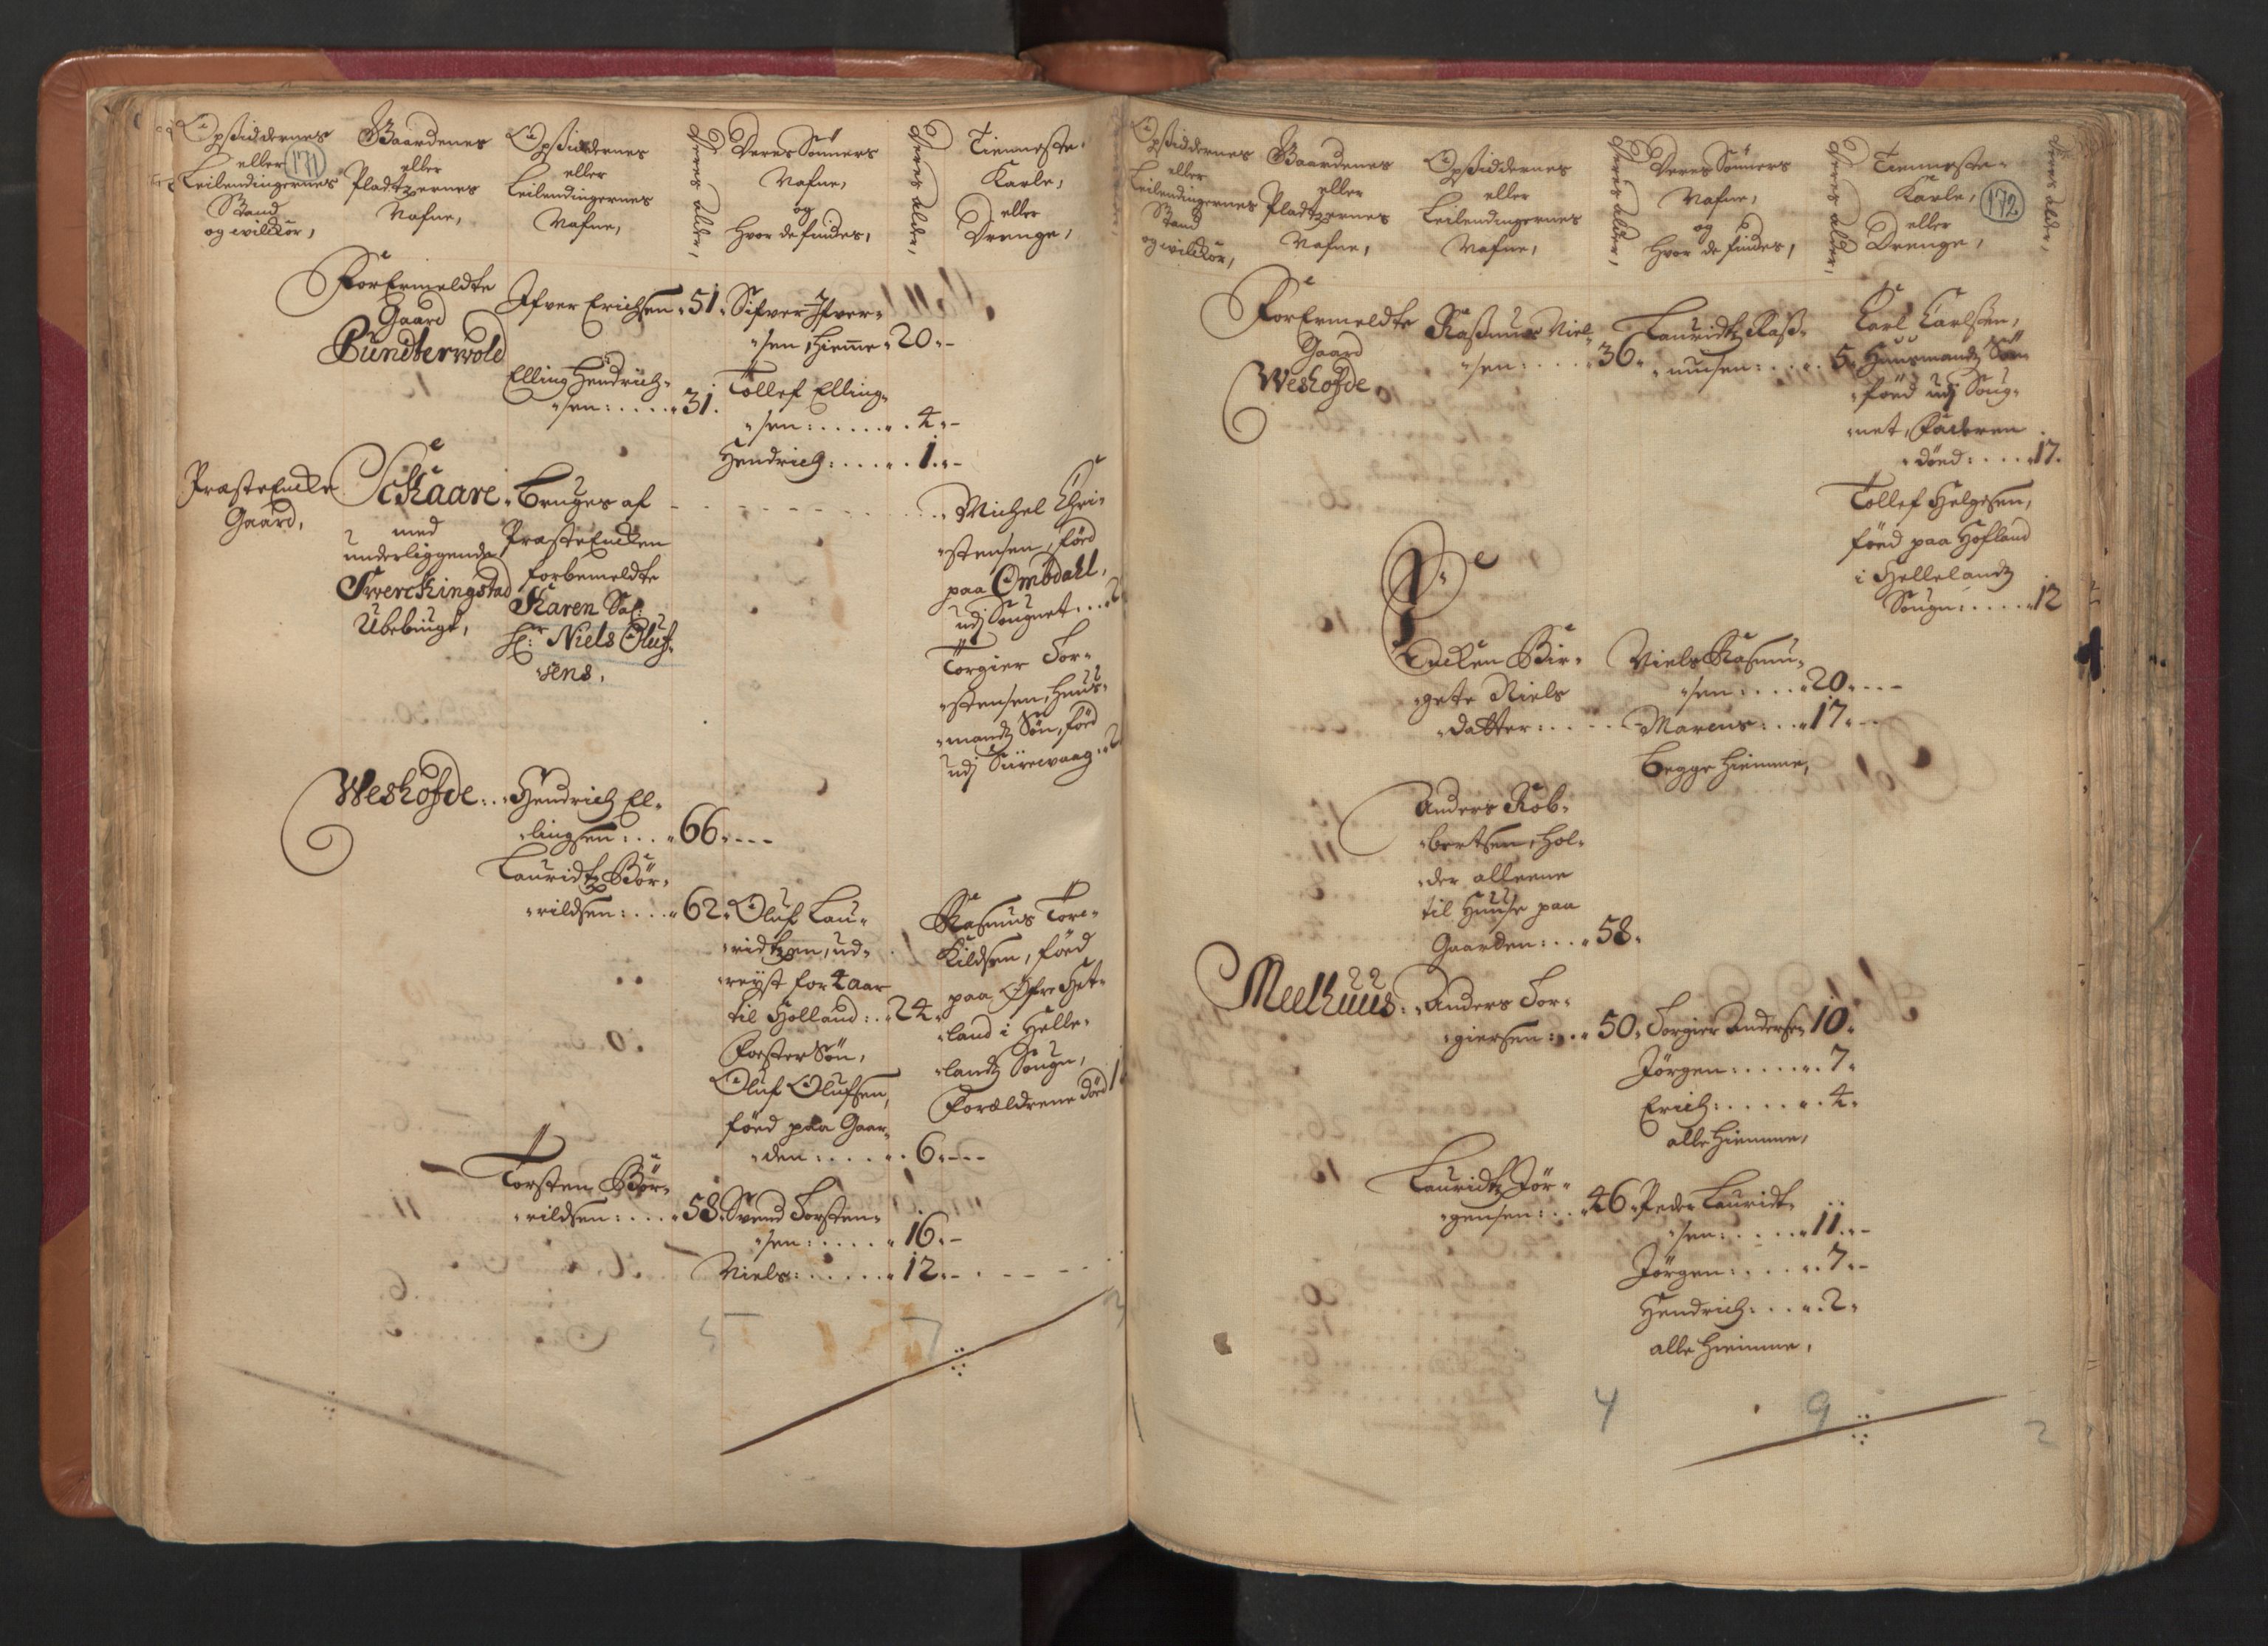 Opsiddernes
eller
Leilendingernes
Stand
og wilckor,
171
Gaardenes
eller
Pladtzernes
Nafne,
Opsiddernes
eller
Leilendingernes
Nafne,
Deres alder,
Deres Sönners
Nafne,
og
hvor de findes,
Deres alder,
Tienneste
Karle,
eller
Drenge,
Forermeldte
Gaard
Bundterwold
Ifver Erichsen 51.
Sifver Ifver-
sen, hiemme 20.
Elling Hendrich-
sen: 31.
Tollef Elling-
sen: 4.
Hendrich: 1.
Præste Encke
Gaard,
Schaare
med
underliggende
Swerckingstad
Ubebugt,
bruges af
Præste Encken
forbemeldte
Karen Sal:
Hr: Niels Oluf-
sens,
Michel Chri-
stensen, föed
paa Ombdahl,
udj Sougnet 2
Torgier Tor-
stensen, Huus-
mandz Sön, föed
udj Siirevaag 2
Weshofde: Hendrich El-
lingsen: 66.
Lauridtz Bör-
rildsen: 62.
Oluf Lau-
ridtzen, ud-
reÿst for 4 aar
til Holland: 24.
Foster Sön,
Oluf Olufsen,
föed paa Gaar-
den: 6.
Rasmus Tore-
kildsen, föed
paa Øfre Het-
land i Helle-
landz Sougn,
Forældrene döed 1
Torsten Bör-
rildsen: 58.
Svend Torsten-
sen: 16.
Niels: 12.
5 7
Opsiddernes
eller
Leilendingernes
Stand
og wilckor,
Gaardenes
eller
Pladtzernes
Nafne,
Opsiddernes
eller
Leilendingernes
Nafne,
Deres alder,
Deres Sönners
Nafne,
og
hvor de findes,
Deres alder,
Tienneste
Karle,
eller
Drenge,
172
Deres alder,
Forermeldte
Gaard
Weshofde
Rasmus Niel-
sen: 36.
Lauridtz Rasm-
musen: 5.
Karl Karlsen,
Huusmandz Sön
föed udj Soug-
net, Faderen
döed: 17.
Tollef Helgesen,
föed paa Hofland
i Hellelandz
Sougn: 12
Encken Bir-
gete Niels
datter:
Niels Rasmu-
sen: 20.
Marcus: 17.
begge hiemme,
Anders Rob-
bertsen, hol-
der alleene
til Huuse paa
Gaarden: 58.
Meelhuus: Anders Tor-
giersen: 50.
Torgier Andersen 10.
Jörgen: 7.
Erich: 4.
alle hiemme,
Lauridtz Jör-
gensen: 46.
Peder Lauridt-
sen: 11.
Jörgen: 7.
Hendrich: 2.
alle hiemme,
4 9 2